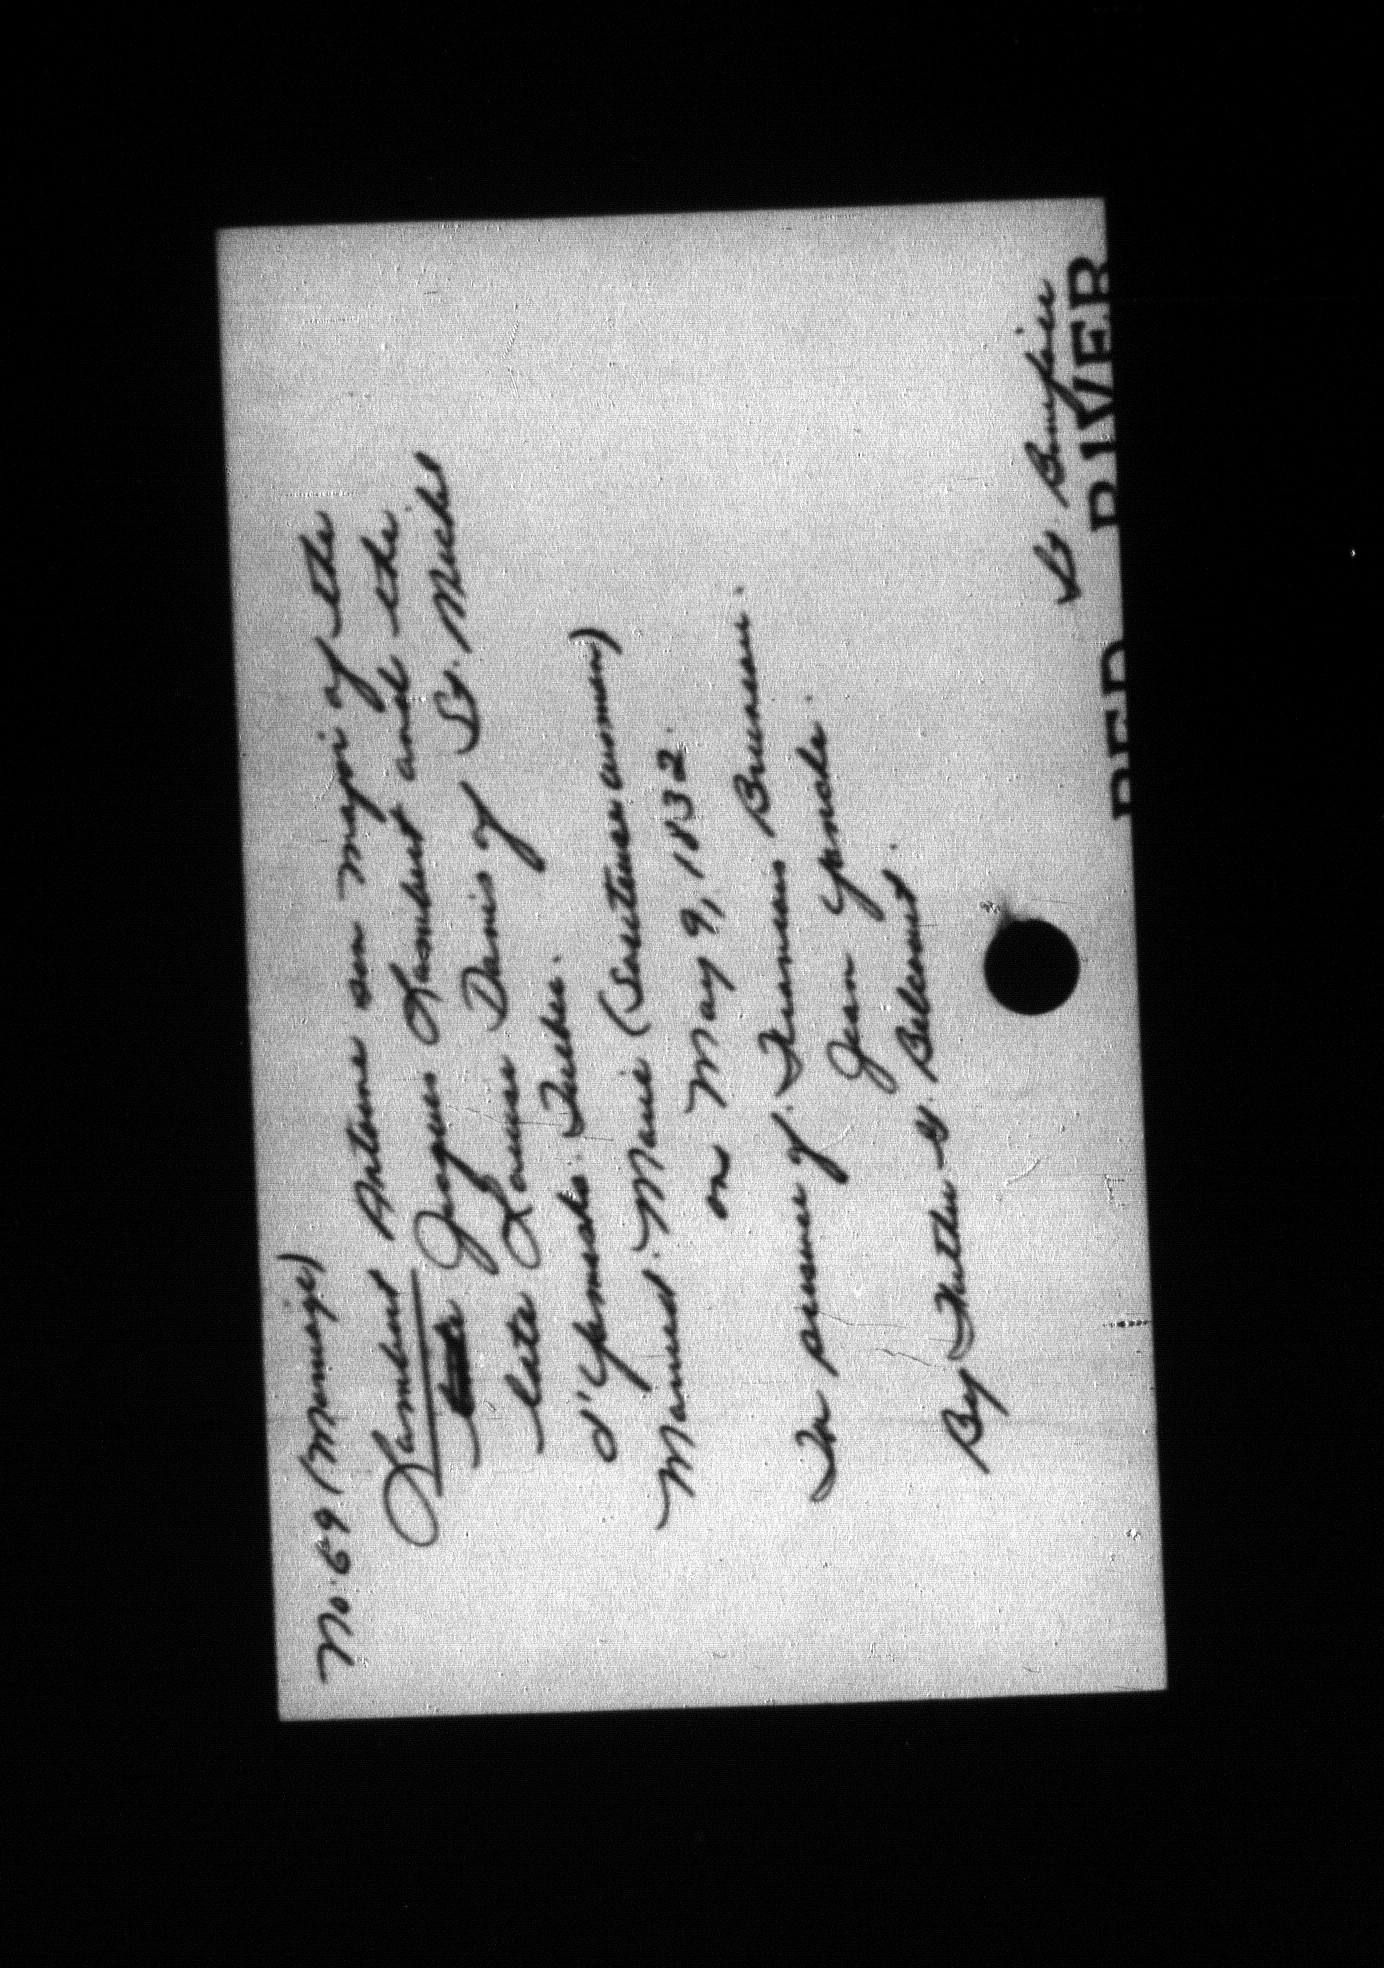 No. 69 (Marriage)
Lambert Antoine son major of the
late Jaques Lambert and the
late Louise Danis of St. Michel
d'Yamaska. Quebec.
Married. Marie (Sauteuse woman)
on May 9, 1832.
In presence of. Francois Bruneau.
Jean Yamche.
By Father G. Belcourt.
St. Boniface
RED RIVER